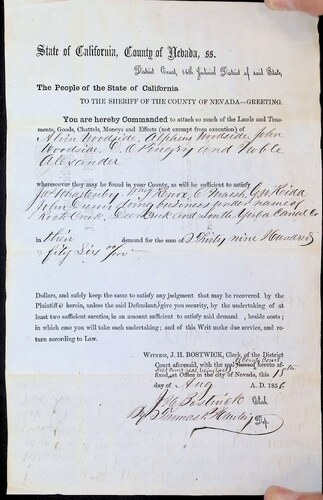 State of California, County of Nevada, ss.
District Court, 14th Judicial District of said State,
The People of the State of California
TO THE SHERIFF OF THE COUNTY OF NEVADA—GREETING.
You are hereby Commanded to attach so much of the Lands and Tene-
ments, Goods, Chattels, Moneys and Effects (not exempt from execution) of
Alvin Woodside, Alpheus Woodside John
Woodside D. O. Kingry and Noble
Alexander
wheresoever they may be found in your County, as will be sufficient to satisfy
Jas Whartenby Wm Knox C Marsh, Geo
John Dunn doing business under name of
Rock Creek, Deer Creek and South Yuba Canal Co
in their demand for the sum of Thirty nine Hundred
fifty Six
Dollars, and safely keep the same to satisfy any judgment that may be recovered by the
Plaintiffs herein, unless the said Defendants give you security, by the undertaking of at
least two sufficient sureties, in an amount sufficient to satisfy said demand, besides costs;
in which case you will take such undertaking; and of this Writ make due service, and
return according to Law.
WITNESS, J. H. BOSTWICK, Clerk of the District
Court aforesaid, with the seal hereof hereto af-
fixed, at Office in the city of Nevada, this 15th
day of Aug A. D. 1856
J H Bostwick Clerk.
By Thomas P. Hawley Dp.